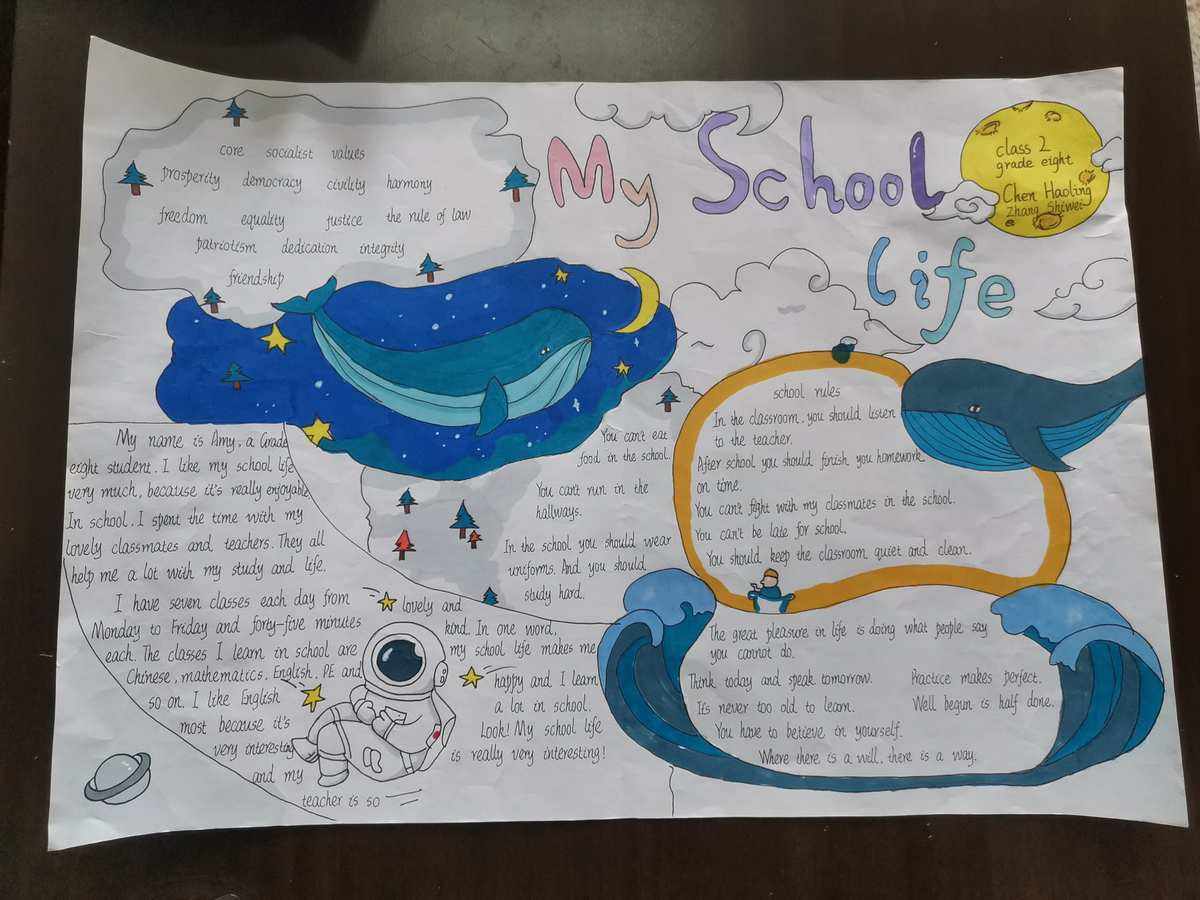 My School
life
class 2
grade eight
Chen Haoling
Zhang Shiwei
core socialist values
prosperity democracy civility harmony
freedom equality justice the rule of law
patriotism dedication integrity
friendship
My name is Amy, a Grade
eight student. I like my school life
very much, because it's really enjoyable.
In school. I spent the time with my
lovely classmates and teachers. They all
help me a lot with my study and life.
I have seven classes each day from
Monday to Friday and forty-five minutes
each. The classes I learn in school are
Chinese, mathematics, English, PE and
so on. I like English
most because it's
very interesting
and my
teacher is so
lovely and
kind. In one word,
my school life makes me
happy and I learn
a lot in school.
Look! My school life
is really very interesting!
You can't eat
food in the school.
You can't run in the
hallways.
In the school you should wear
uniforms. And you should
study hard.
school rules
In the classroom, you should listen
to the teacher.
After school you should finish you homework
on time.
You can't fight with my classmates in the school.
You can't be late for school.
You should keep the classroom quiet and clean.
The great pleasure in life is doing what people say
you cannot do.
Think today and speak tomorrow. Practice makes perfect.
It's never too old to learn. Well begun is half done.
You have to believe in yourself.
Where there is a will, there is a way.